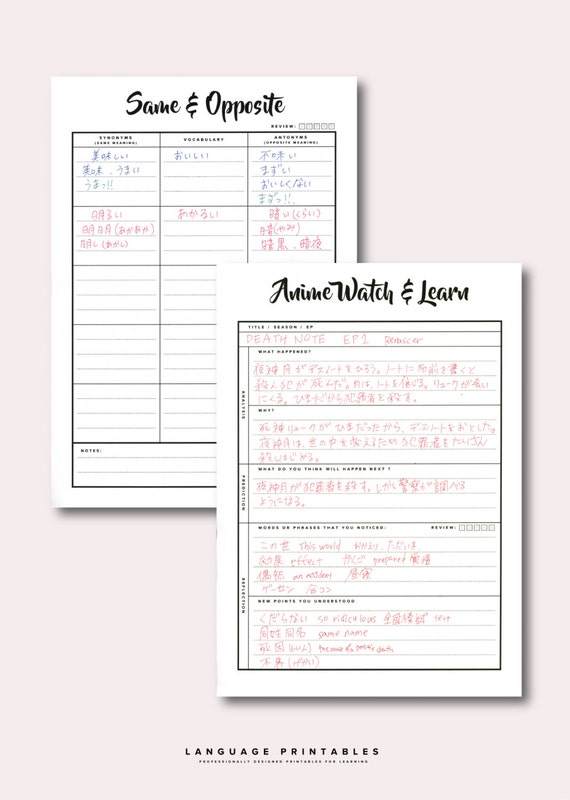 Same & Opposite
REVIEW:
SYNONYMS
(SAME MEANING)
VOCABULARY
ANTONYMS
(OPPOSITE MEANING)
美味しい
おいしい
不味い
美味、うまい
まずい
うまっ!!
おいしくない
まずっ!!
明るい
あかるい
暗い(くらい)
暗(やみ)
明し(あかし)
暗黒、暗夜
NOTES:
Anime Watch & Learn
TITLE / SEASON / EP
DEATH NOTE EP1
ANALYSIS
WHAT HAPPENED?
夜神月がデスノートをひろう。ノートに名前を書くと
殺人犯が死んだ。月は、ノートを信じる。リュークが会い
にくる。ひまだから犯罪者を殺す。
WHY?
死神リュークがひまだったから、デスノートをおとした。
夜神月は、世の中を変えるため犯罪者をたくさん
殺しはじめる。
PREDICTION
WHAT DO YOU THINK WILL HAPPEN NEXT ?
夜神月が犯罪者を殺す。しかし警察が調べる
ようになる。
REFLECTION
WORDS OR PHRASES THAT YOU NOTICED:
REVIEW:
この世 This world おかえり、ただいま
効果 effect かくご prepared
偶然 an accident
ゲーセン 合コン
NEW POINTS YOU UNDERSTOOD
くだらない so ridiculous 全国模試 test
同姓同名 same name
死因(しいん) the cause of a death
LANGUAGE PRINTABLES
PROFESSIONALLY DESIGNED PRINTABLES FOR LEARNING